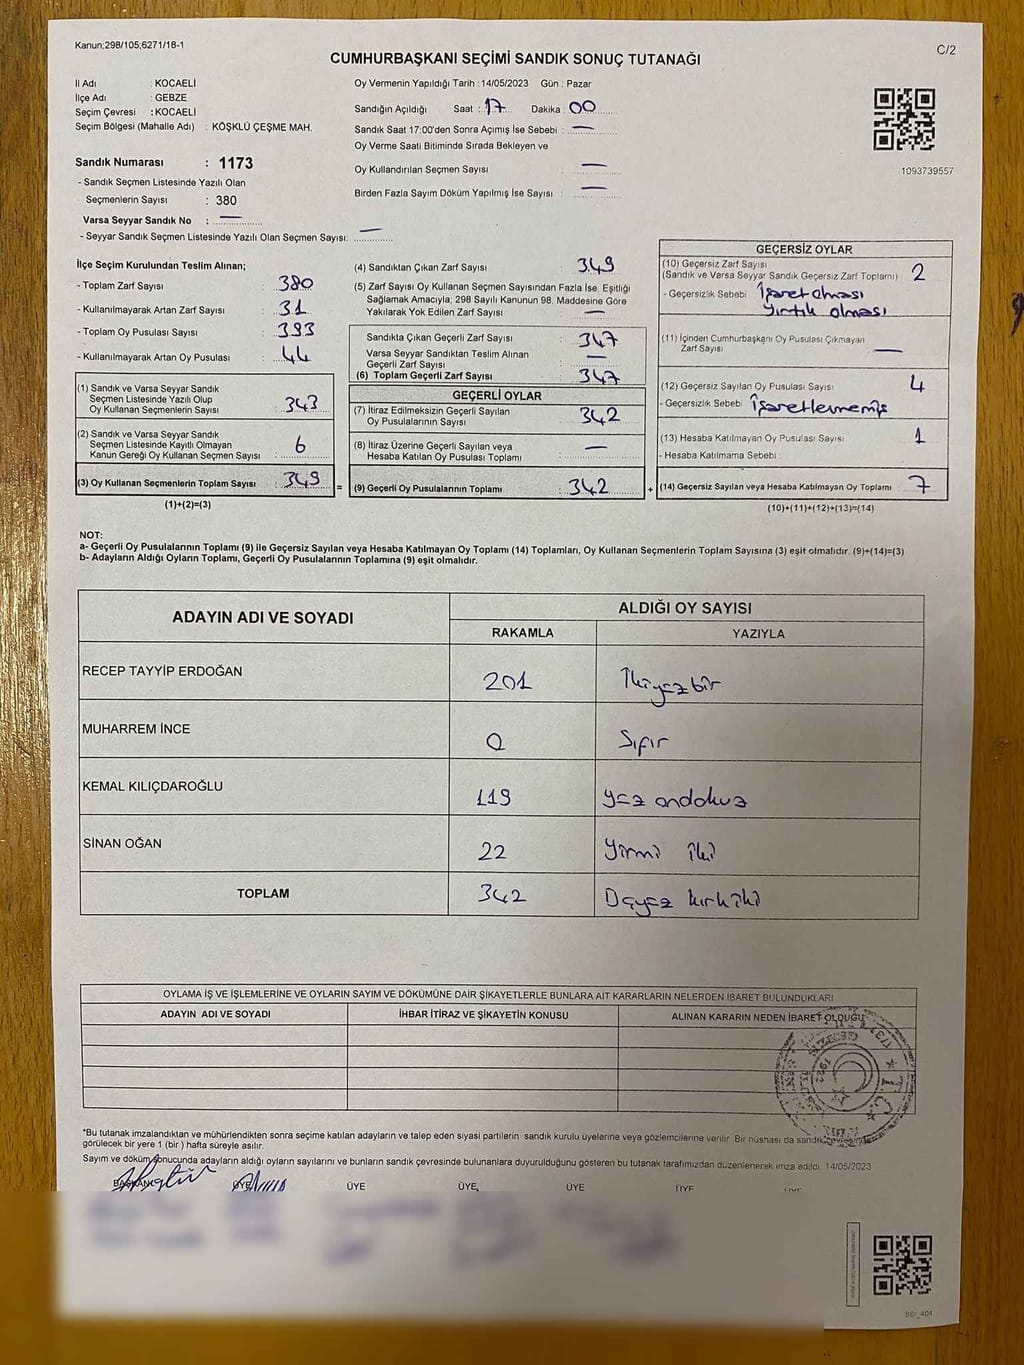 Kanun;298/105;6271/18-1
C/2
CUMHURBAŞKANI SEÇİMİ SANDIK SONUÇ TUTANAĞI
İl Adı : KOCAELİ
İlçe Adı : GEBZE
Seçim Çevresi : KOCAELİ
Seçim Bölgesi (Mahalle Adı) : KÖŞKLÜ ÇEŞME MAH.
Sandık Numarası : 1173
- Sandık Seçmen Listesinde Yazılı Olan
Seçmenlerin Sayısı : 380
Varsa Seyyar Sandık No : —
- Seyyar Sandık Seçmen Listesinde Yazılı Olan Seçmen Sayısı: —
Oy Vermenin Yapıldığı Tarih :14/05/2023 Gün : Pazar
Sandığın Açıldığı Saat : 17 Dakika : 00
Sandık Saat 17:00'den Sonra Açımış İse Sebebi : —
Oy Verme Saati Bitiminde Sırada Bekleyen ve
Oy Kullandırılan Seçmen Sayısı : —
Birden Fazla Sayım Döküm Yapılmış İse Sayısı : —
1093739557
İlçe Seçim Kurulundan Teslim Alınan;
- Toplam Zarf Sayısı : 380
- Kullanılmayarak Artan Zarf Sayısı : 31
- Toplam Oy Pusulası Sayısı : 393
- Kullanılmayarak Artan Oy Pusulası : 44
(1) Sandık ve Varsa Seyyar Sandık
Seçmen Listesinde Yazılı Olup
Oy Kullanan Seçmenlerin Sayısı : 343
(2) Sandık ve Varsa Seyyar Sandık
Seçmen Listesinde Kayıtlı Olmayan
Kanun Gereği Oy Kullanan Seçmen Sayısı : 6
(3) Oy Kullanan Seçmenlerin Toplam Sayısı : 349
(1)+(2)=(3)
=
(4) Sandıktan Çıkan Zarf Sayısı : 349
(5) Zarf Sayısı Oy Kullanan Seçmen Sayısından Fazla İse, Eşitliği
Sağlamak Amacıyla; 298 Sayılı Kanunun 98. Maddesine Göre
Yakılarak Yok Edilen Zarf Sayısı : —
Sandıkta Çıkan Geçerli Zarf Sayısı : 347
Varsa Seyyar Sandıktan Teslim Alınan
Geçerli Zarf Sayısı : —
(6) Toplam Geçerli Zarf Sayısı : 347
GEÇERLİ OYLAR
(7) İtiraz Edilmeksizin Geçerli Sayılan
Oy Pusulalarının Sayısı : 342
(8) İtiraz Üzerine Geçerli Sayılan veya
Hesaba Katılan Oy Pusulası Toplamı : —
(9) Geçerli Oy Pusulalarının Toplamı : 342
+
GEÇERSİZ OYLAR
(10) Geçersiz Zarf Sayısı
(Sandık ve Varsa Seyyar Sandık Geçersiz Zarf Toplamı) : 2
- Geçersizlik Sebebi : İşaret olması
Yırtık olması
(11) İçinden Cumhurbaşkanı Oy Pusulası Çıkmayan
Zarf Sayısı : —
(12) Geçersiz Sayılan Oy Pusulası Sayısı : 4
- Geçersizlik Sebebi : İşaretlenmemiş
(13) Hesaba Katılmayan Oy Pusulası Sayısı : 1
- Hesaba Katılmama Sebebi :
(14) Geçersiz Sayılan veya Hesaba Katılmayan Oy Toplamı : 7
(10)+(11)+(12)+(13)=(14)
NOT:
a- Geçerli Oy Pusulalarının Toplamı (9) ile Geçersiz Sayılan veya Hesaba Katılmayan Oy Toplamı (14) Toplamları, Oy Kullanan Seçmenlerin Toplam Sayısına (3) eşit olmalıdır. (9)+(14)=(3)
b- Adayların Aldığı Oyların Toplamı, Geçerli Oy Pusulalarının Toplamına (9) eşit olmalıdır.
ADAYIN ADI VE SOYADI
ALDIĞI OY SAYISI
RAKAMLA YAZIYLA
RECEP TAYYİP ERDOĞAN 201 İkiyüzbir
MUHARREM İNCE 0 Sıfır
KEMAL KILIÇDAROĞLU 119 yüz ondokuz
SİNAN OĞAN 22 Yirmi iki
TOPLAM 342 Üçyüz kırkiki
OYLAMA İŞ VE İŞLEMLERİNE VE OYLARIN SAYIM VE DÖKÜMÜNE DAİR ŞİKAYETLERLE BUNLARA AİT KARARLARIN NELERDEN İBARET BULUNDUKLARI
ADAYIN ADI VE SOYADI İHBAR İTİRAZ VE ŞİKAYETİN KONUSU ALINAN KARARIN NEDEN İBARET OLDUĞU
T.C.
1922
*Bu tutanak imzalandıktan ve mühürlendikten sonra seçime katılan adayların ve talep eden siyasi partilerin sandık kurulu üyelerine veya gözlemcilerine verilir. Bir nüshası da
görülecek bir yere 1 (bir ) hafta süreyle asılır.
Sayım ve döküm sonucunda adayların aldığı oyların sayılarını ve bunların sandık çevresinde bulunanlara duyurulduğunu gösteren bu tutanak tarafımızdan düzenlenerek imza edildi. 14/05/2023
BAŞKAN ÜYE ÜYE ÜYE ÜYE ÜYE ÜYE